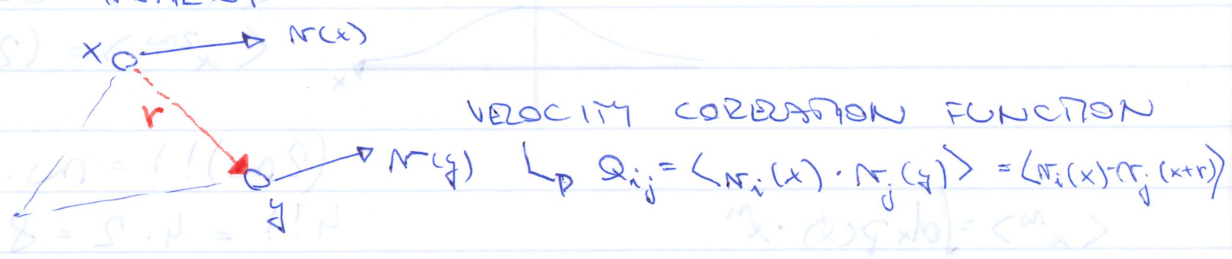 x v(x)
r
VELOCITY CORELATION FUNCTION
v(y) ↳ Q_ij = <v_i(x) · v_j(y)> = <v_i(x) · v_j(x+r)>
y